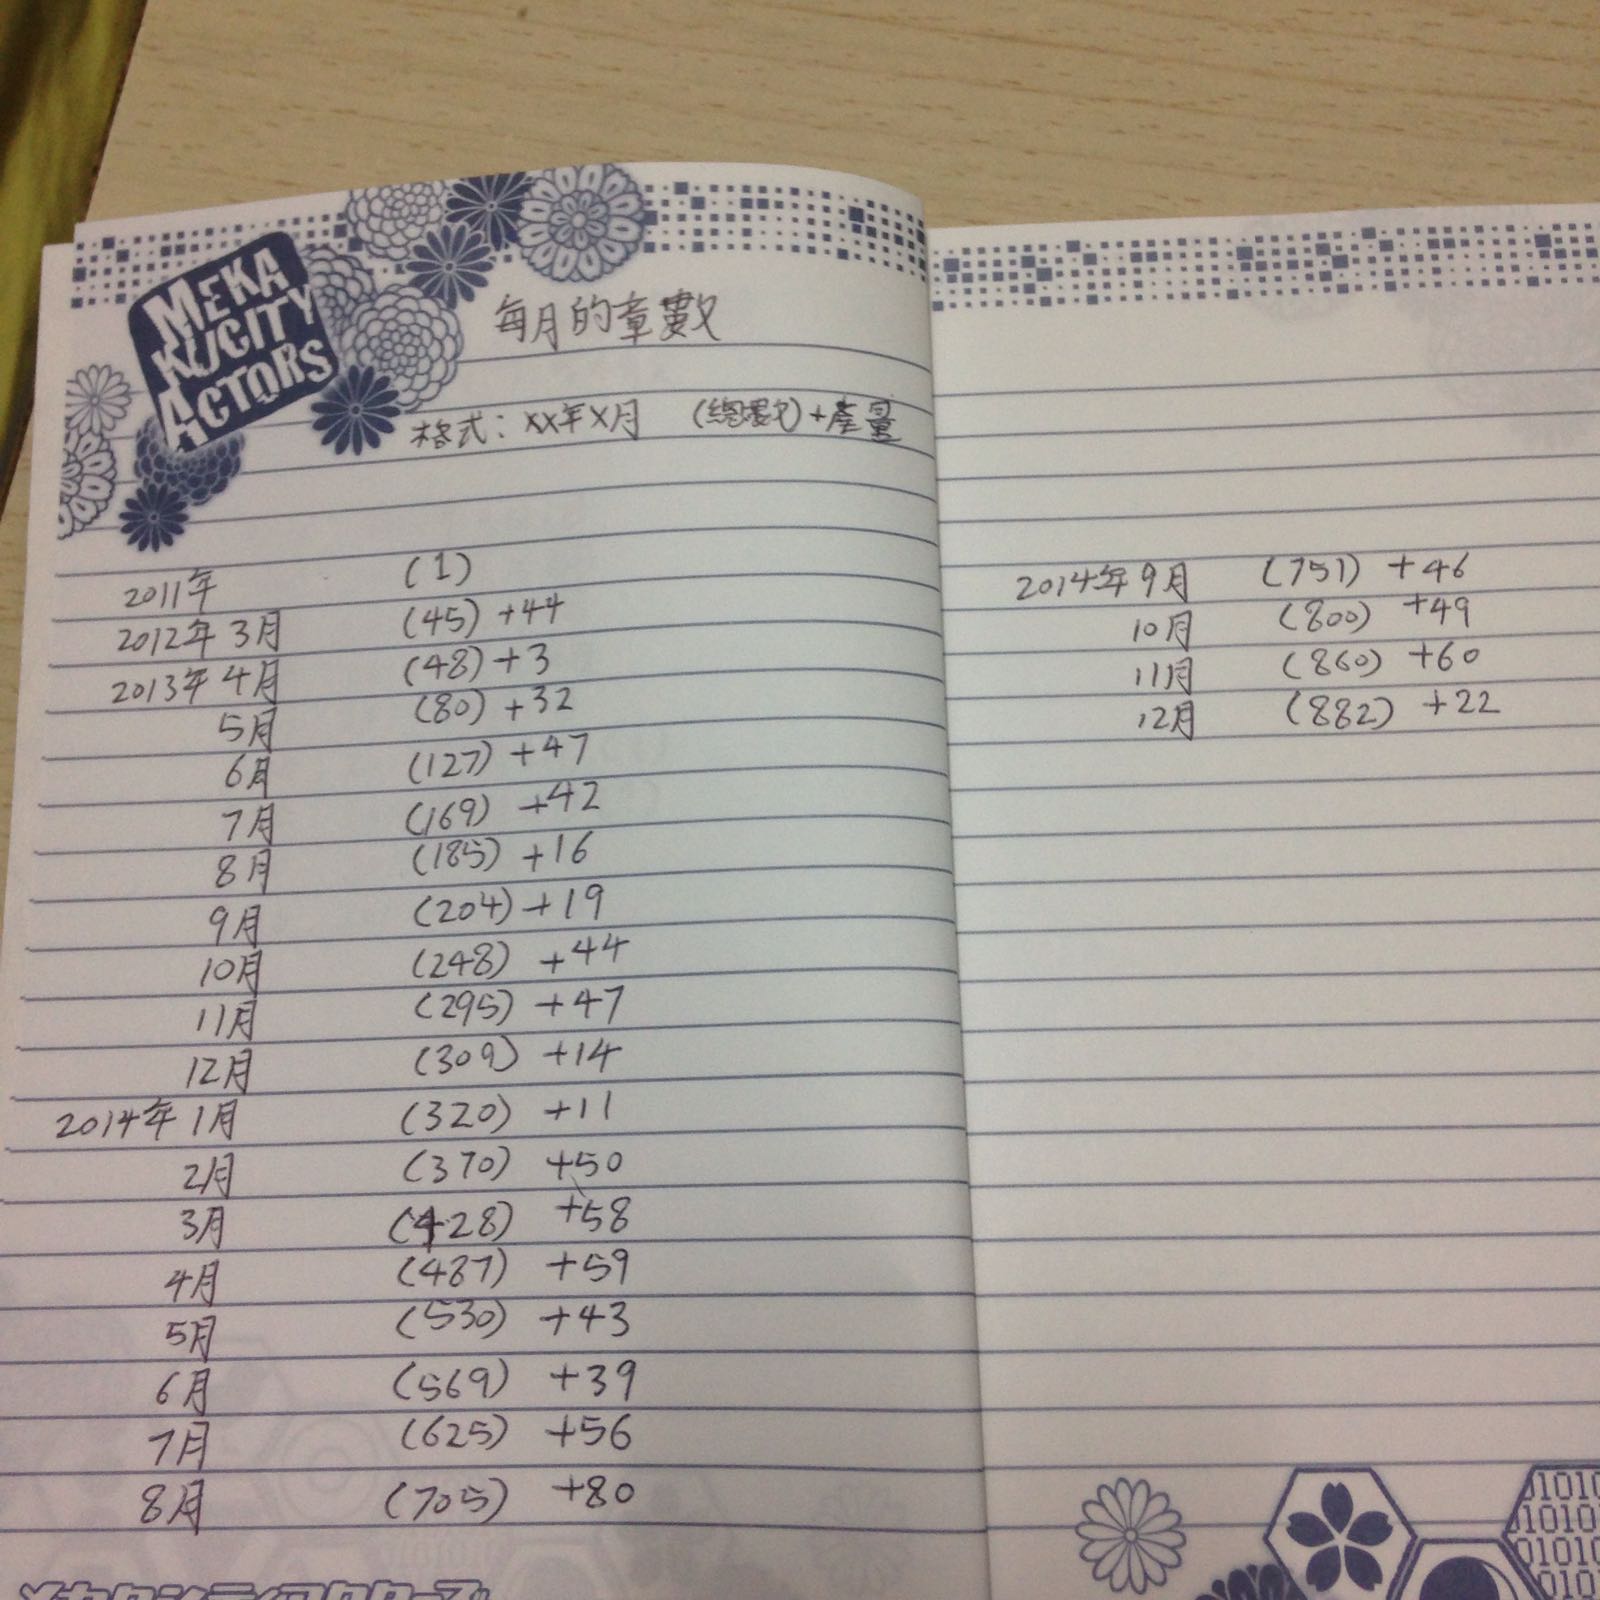 MEKA
KUCITY
ACTORS
每月的章數
格式：XX年X月 (總數)+產量
2011年 (1)
2012年3月 (45) +44
2013年4月 (48) +3
5月 (80) +32
6月 (127) +47
7月 (169) +42
8月 (185) +16
9月 (204) +19
10月 (248) +44
11月 (295) +47
12月 (309) +14
2014年1月 (320) +11
2月 (370) +50
3月 (428) +58
4月 (487) +59
5月 (530) +43
6月 (569) +39
7月 (625) +56
8月 (705) +80
メカクシティアクターズ
2014年9月 (751) +46
10月 (800) +49
11月 (860) +60
12月 (882) +22
1010
1010
1010
1010